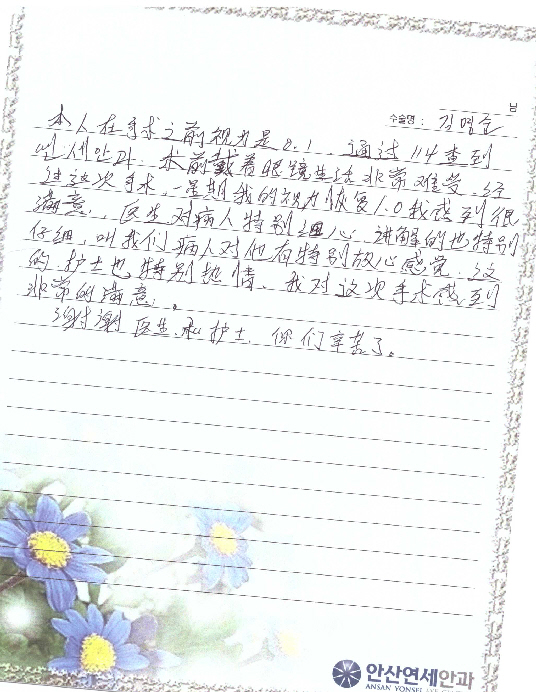 님
수술명 : 김명준
本人在手术之前视力是0.1 通过114查到
연세안과. 术前戴着眼镜生活非常难受. 经
过这次手术, 一星期我的视力恢复1.0我感到很
满意. 医生对病人特别细心 讲解的也特别
仔细, 叫我们病人对他有特别放心感觉. 这
的护士也特别热情. 我对这次手术感到
非常的满意.
谢谢医生和护士. 你们辛苦了。
안산연세안과
ANSAN YONSEI